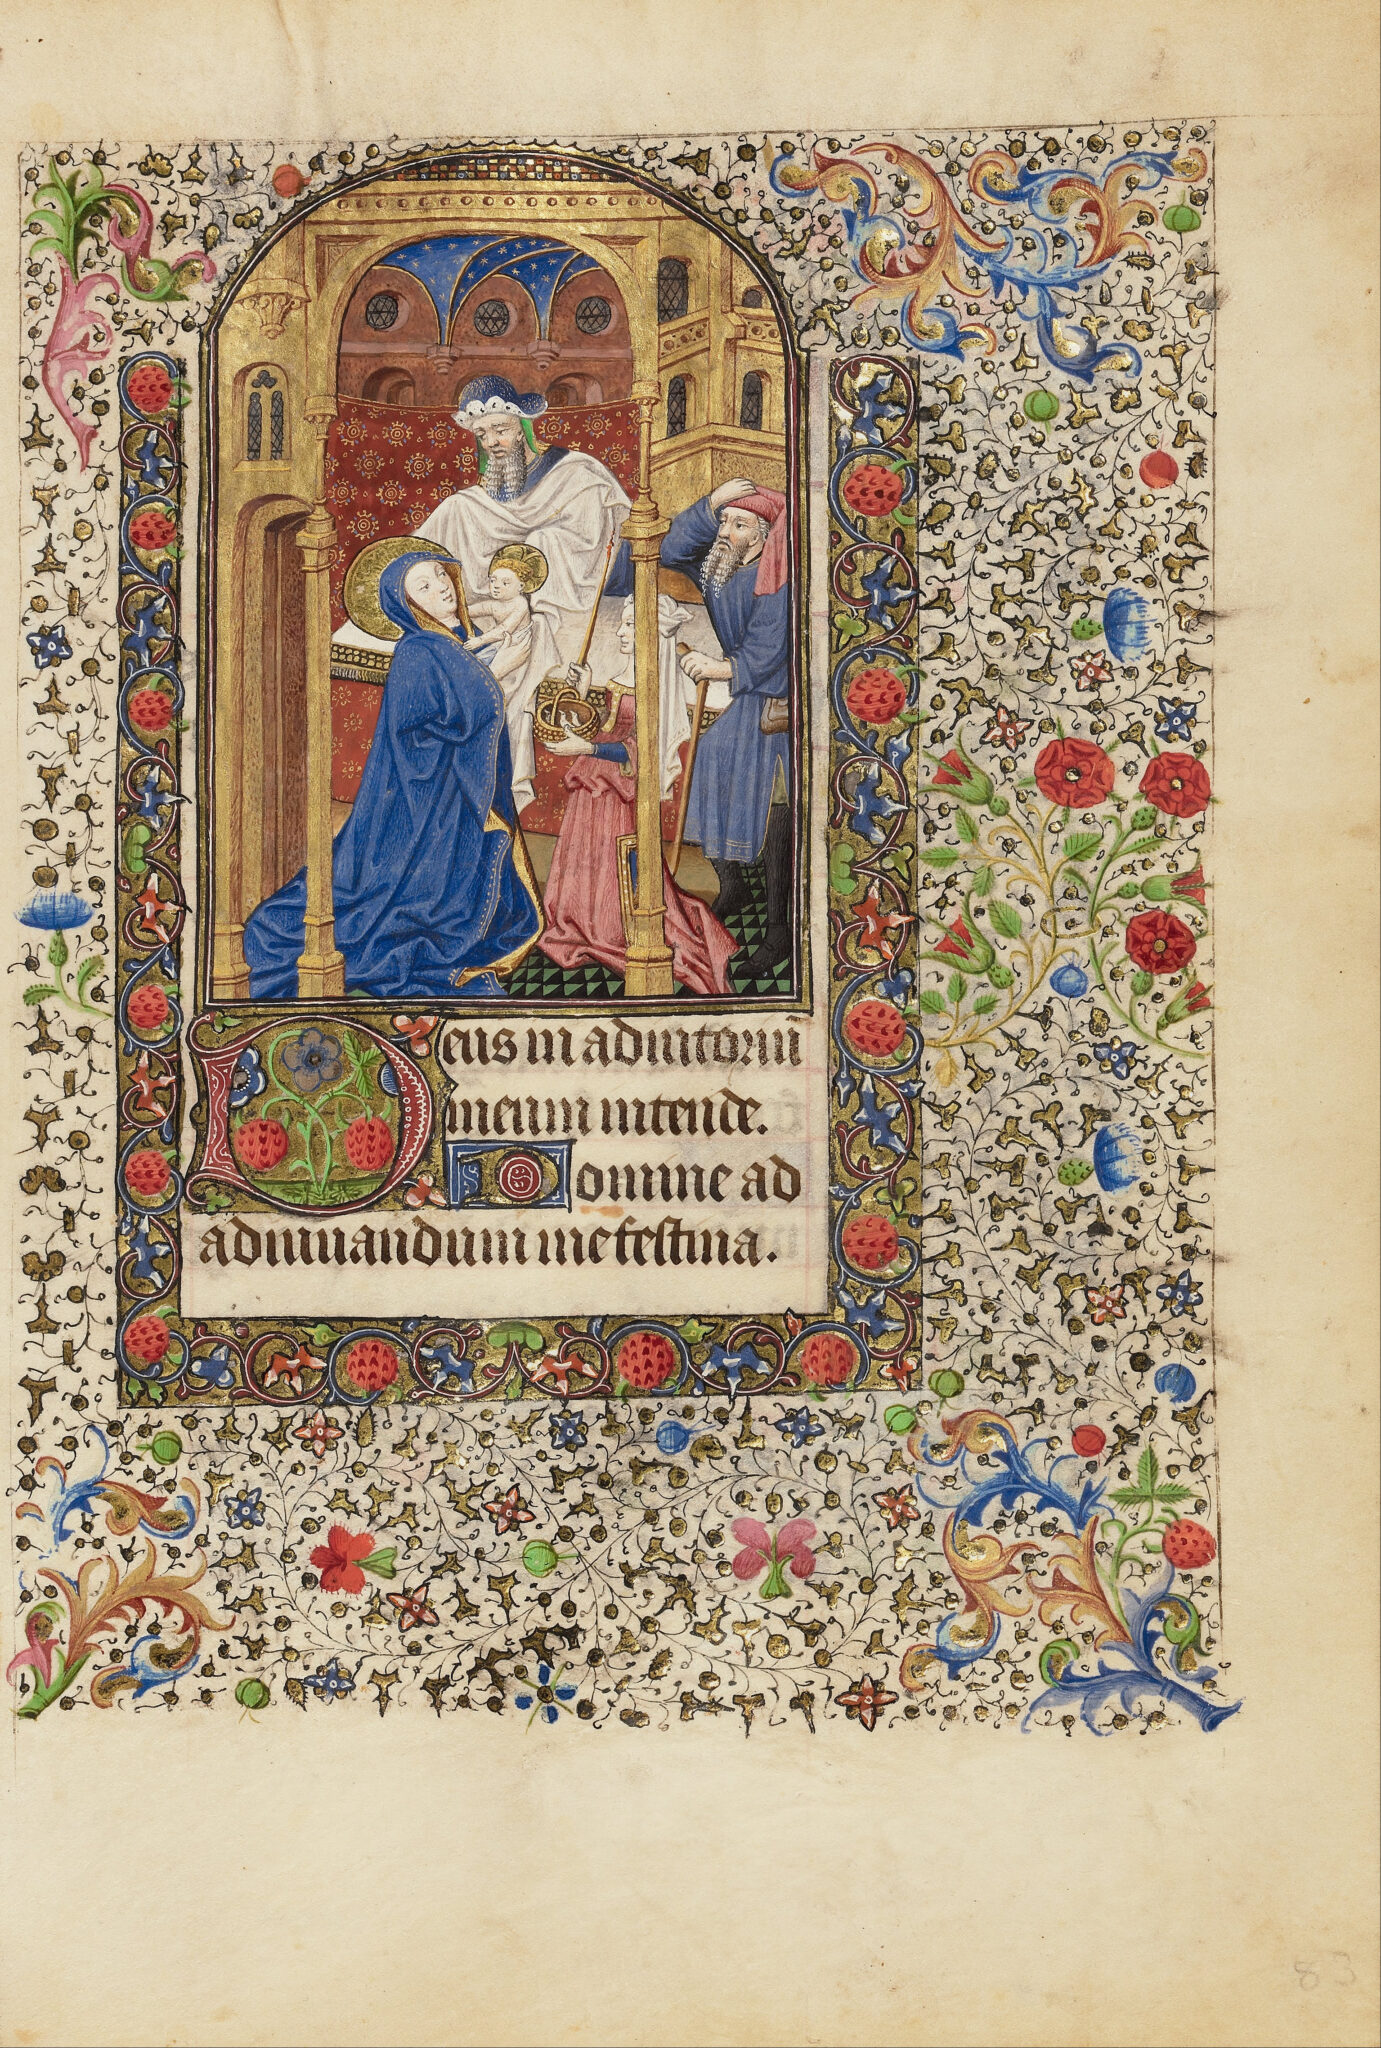 Deus in adiutoriũ
meum intende.
Domine ad
adiuuandum me festina.
83